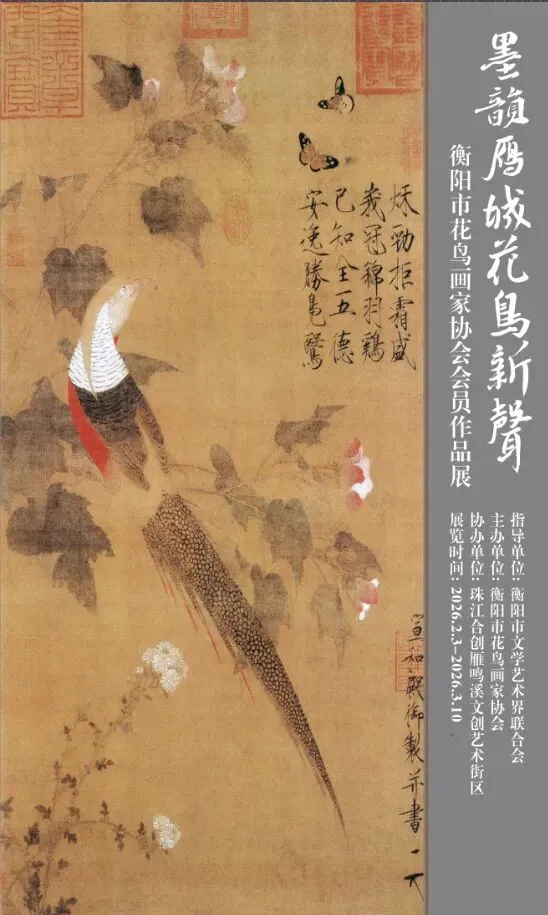 墨韻雁城花鳥新聲
衡阳市花鸟画家协会会员作品展
指导单位：衡阳市文学艺术界联合会
主办单位：衡阳市花鸟画家协会
协办单位：珠江合创雁鸣溪文创艺术街区
展览时间：2026.2.3-2026.3.10
秋勁拒霜盛
峩冠錦羽鷄
已知全五德
安逸勝鳧鷖
宣和殿御製并書